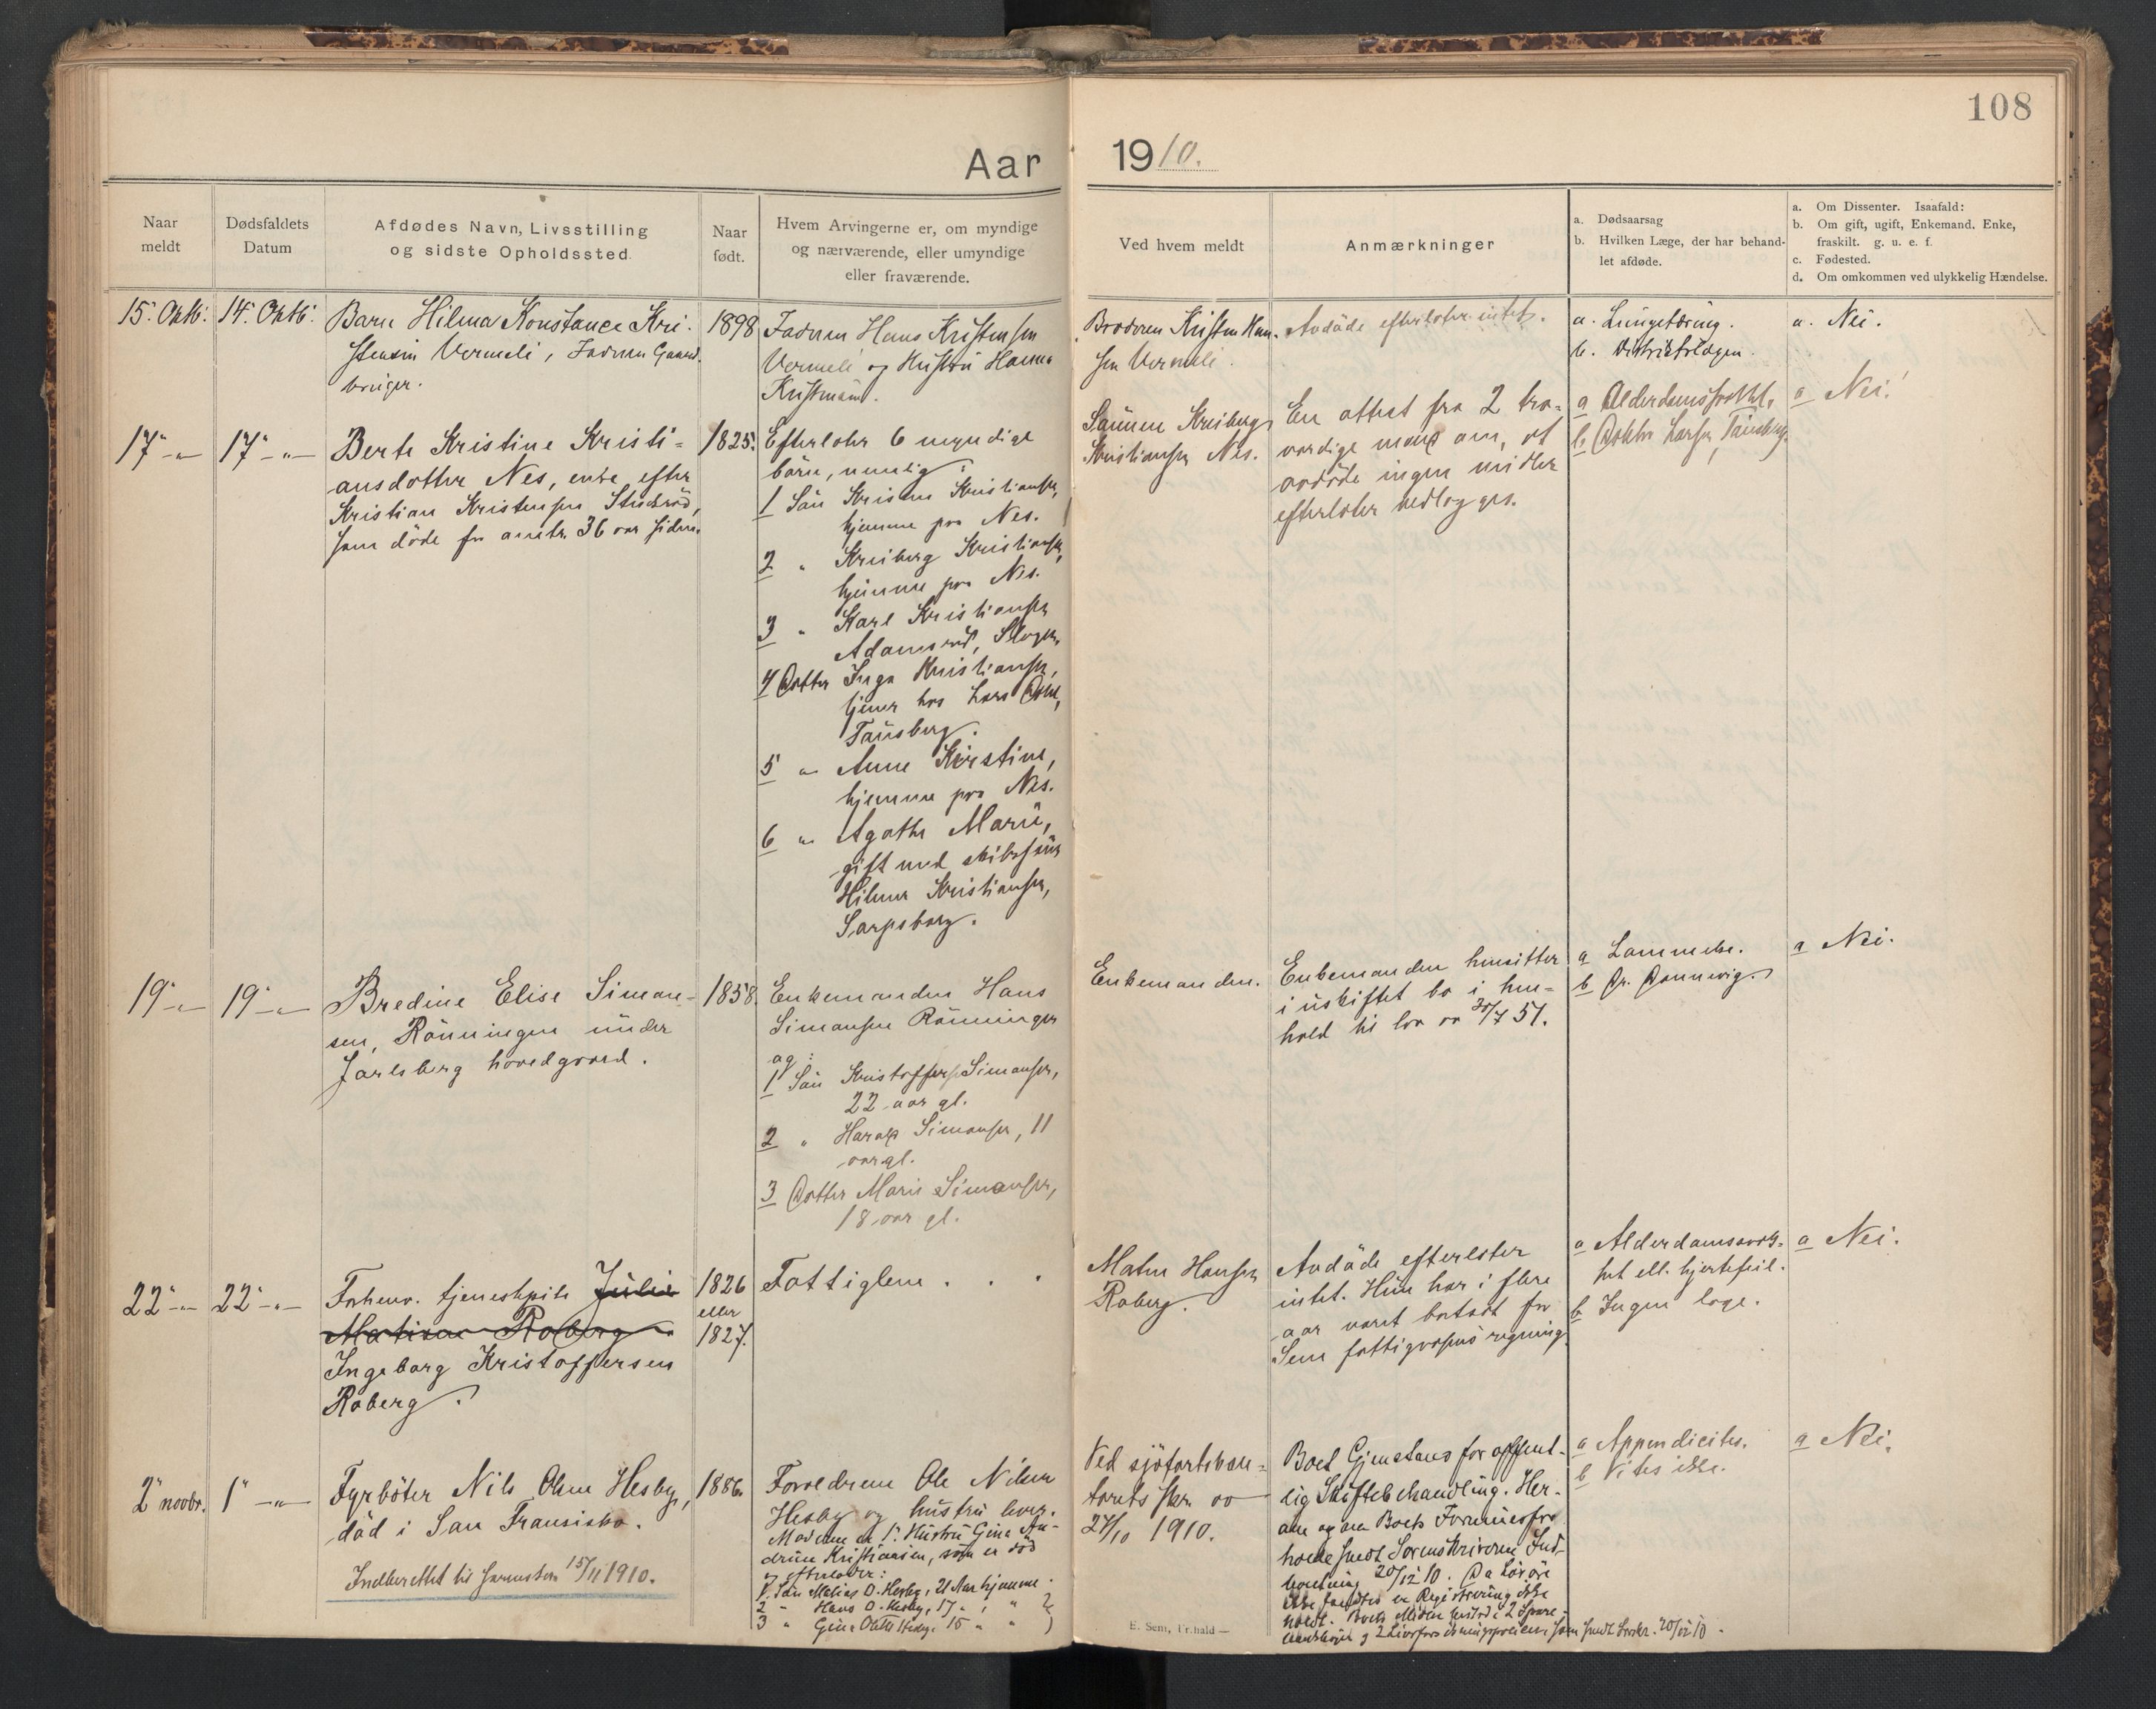 108
Aar 1910.
Naar
meldt
Dødsfaldets
Datum
Afdødes Navn, Livsstilling
og sidste Opholdssted.
Naar
født.
Hvem Arvingerne er, om myndige
og nærværende, eller umyndige
eller fraværende.
Ved hvem meldt
Anmærkninger
a. Dødsaarsag
b. Hvilken Læge, der har behand-
let afdøde.
a. Om Dissenter. Isaafald:
b. Om gift, ugift, Enkemand, Enke,
fraskilt. g. u. e. f.
c. Fødested.
d. Om omkommen ved ulykkelig Hændelse.
15. Oktb.
14. Oktb.
Barn Hilma Konstance Kri-
stensen Vermeli, Faderen Gaard-
bruger.
1898
Faderen Hans Kristensen
Vermeli og Hustru Hanna
Broderen Kristen Han-
sen Vermeli.
Avdøde efterlater intet.
a. Lungetæring.
b. Distriktslægen.
a. Nei.
17 -"-
17 -"-
Berte Kristine Kristi-
ansdotter Nes, enke efter
Kristian Kristensen
som døde for omtr. 36 aar siden.
1825.
Efterlater 6 myndige
børn, nemlig:
1 Søn Kristen Kristiansen,
hjemme paa Nes.
2 " Kreiberg Kristiansen,
hjemme paa Nes.
3 " Karl Kristiansen
Adamsrød, Slagen.
4 Dotter Inga Kristiansen,
tjener hos Lars
Tønsberg.
5 " Anne Kirstine,
hjemme paa Nes.
6 " Agathe Marie,
gift med
Hilmer Kristiansen,
Sarpsborg.
Sønnen Kreiberg
Kristiansen Nes.
En attest fra 2 tro-
værdige mænd om, at
avdøde ingen midler
efterlater vedlægges.
a Alderdomssvakh.
b. Doktor Larsen, Tønsberg.
a Nei.
19 -"-
19 -"-
Bredine Elise Siman-
sen, Rønningen under
Jarlsberg hovedgaard.
1858.
Enkemanden Hans
Simansen Rønningen
og:
1 Søn Kristoffer Simansen,
22 aar gl.
2 " Harald Simansen, 11
aar gl.
3 Dotter Marie Simansen,
18 aar gl.
Enkemanden.
Enkemanden hensitter
i uskiftet bo i hen-
hold til lov av 30/7 51.
a Lammelse.
b Dr. Dannevig.
a Nei.
22 -"-
22 -"-
Forhenv. tjenestepike Julie
Matisen Roberg
Ingeborg Kristoffersen
Roberg.
1826
eller
1827.
Fattiglem . . .
Maten Hansen
Roberg.
Avdøde efterlater
intet. Hun har i flere
aar været betalt for
Sem fattigvæsens regning.
a Alderdomssvak-
het ell. hjertefeil.
b Ingen læge.
a Nei.
2 novbr.
1 -"-
Fyrbøter Nils Olsen Hesby,
død i San Fransisko.
Indberettet til sorenskr. 15/11 1910.
1886.
Forældrene Ole Nilsen
Hesby og hustru lever.
Moderen er 1. Hustru Gina An-
drine Kristiansen, som er død
og efterlater:
1. Søn Matias O. Hesby, 21 Aar hjemme.
2 " Hans O. Hesby, 17 " , "
3 " Gina Hesby, 15 " "
Ved sjøfartskon-
torets skr. av
27/10 1910.
Boet Gjenstand for offent-
lig Skiftebehandling. Her-
om og om Boets Formuesfor
holde sendt Sorenskriveren Ind-
beretning 20/12 10. Da Løsøre
ikke fandtes er Registrering ikke
holdt. Boets Midler bestod i 2 Spare-
bankbøger og 2 som sendt Sorskr. 20/12 10.
a Appendicites.
b Vites ikke.
a Nei.
E. Sem, Fr.hald —